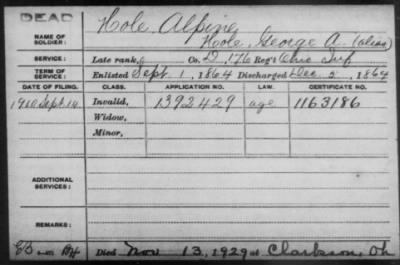 DEAD
NAME OF SOLDIER: Hole, Alpine
Hole, George A. (alias)
SERVICE: Late rank, Co. D, 176 Reg't Ohio Inf
TERM OF SERVICE: Enlisted Sept. 1, 1864 Discharged Dec. 5, 1864
DATE OF FILING. CLASS. APPLICATION NO. LAW. CERTIFICATE NO.
1910 Sept. 14 Invalid, 1392429 age 1163186
Widow,
Minor,
ADDITIONAL SERVICES:
REMARKS:
Died Nov 13, 1929 at Clarkson, Oh